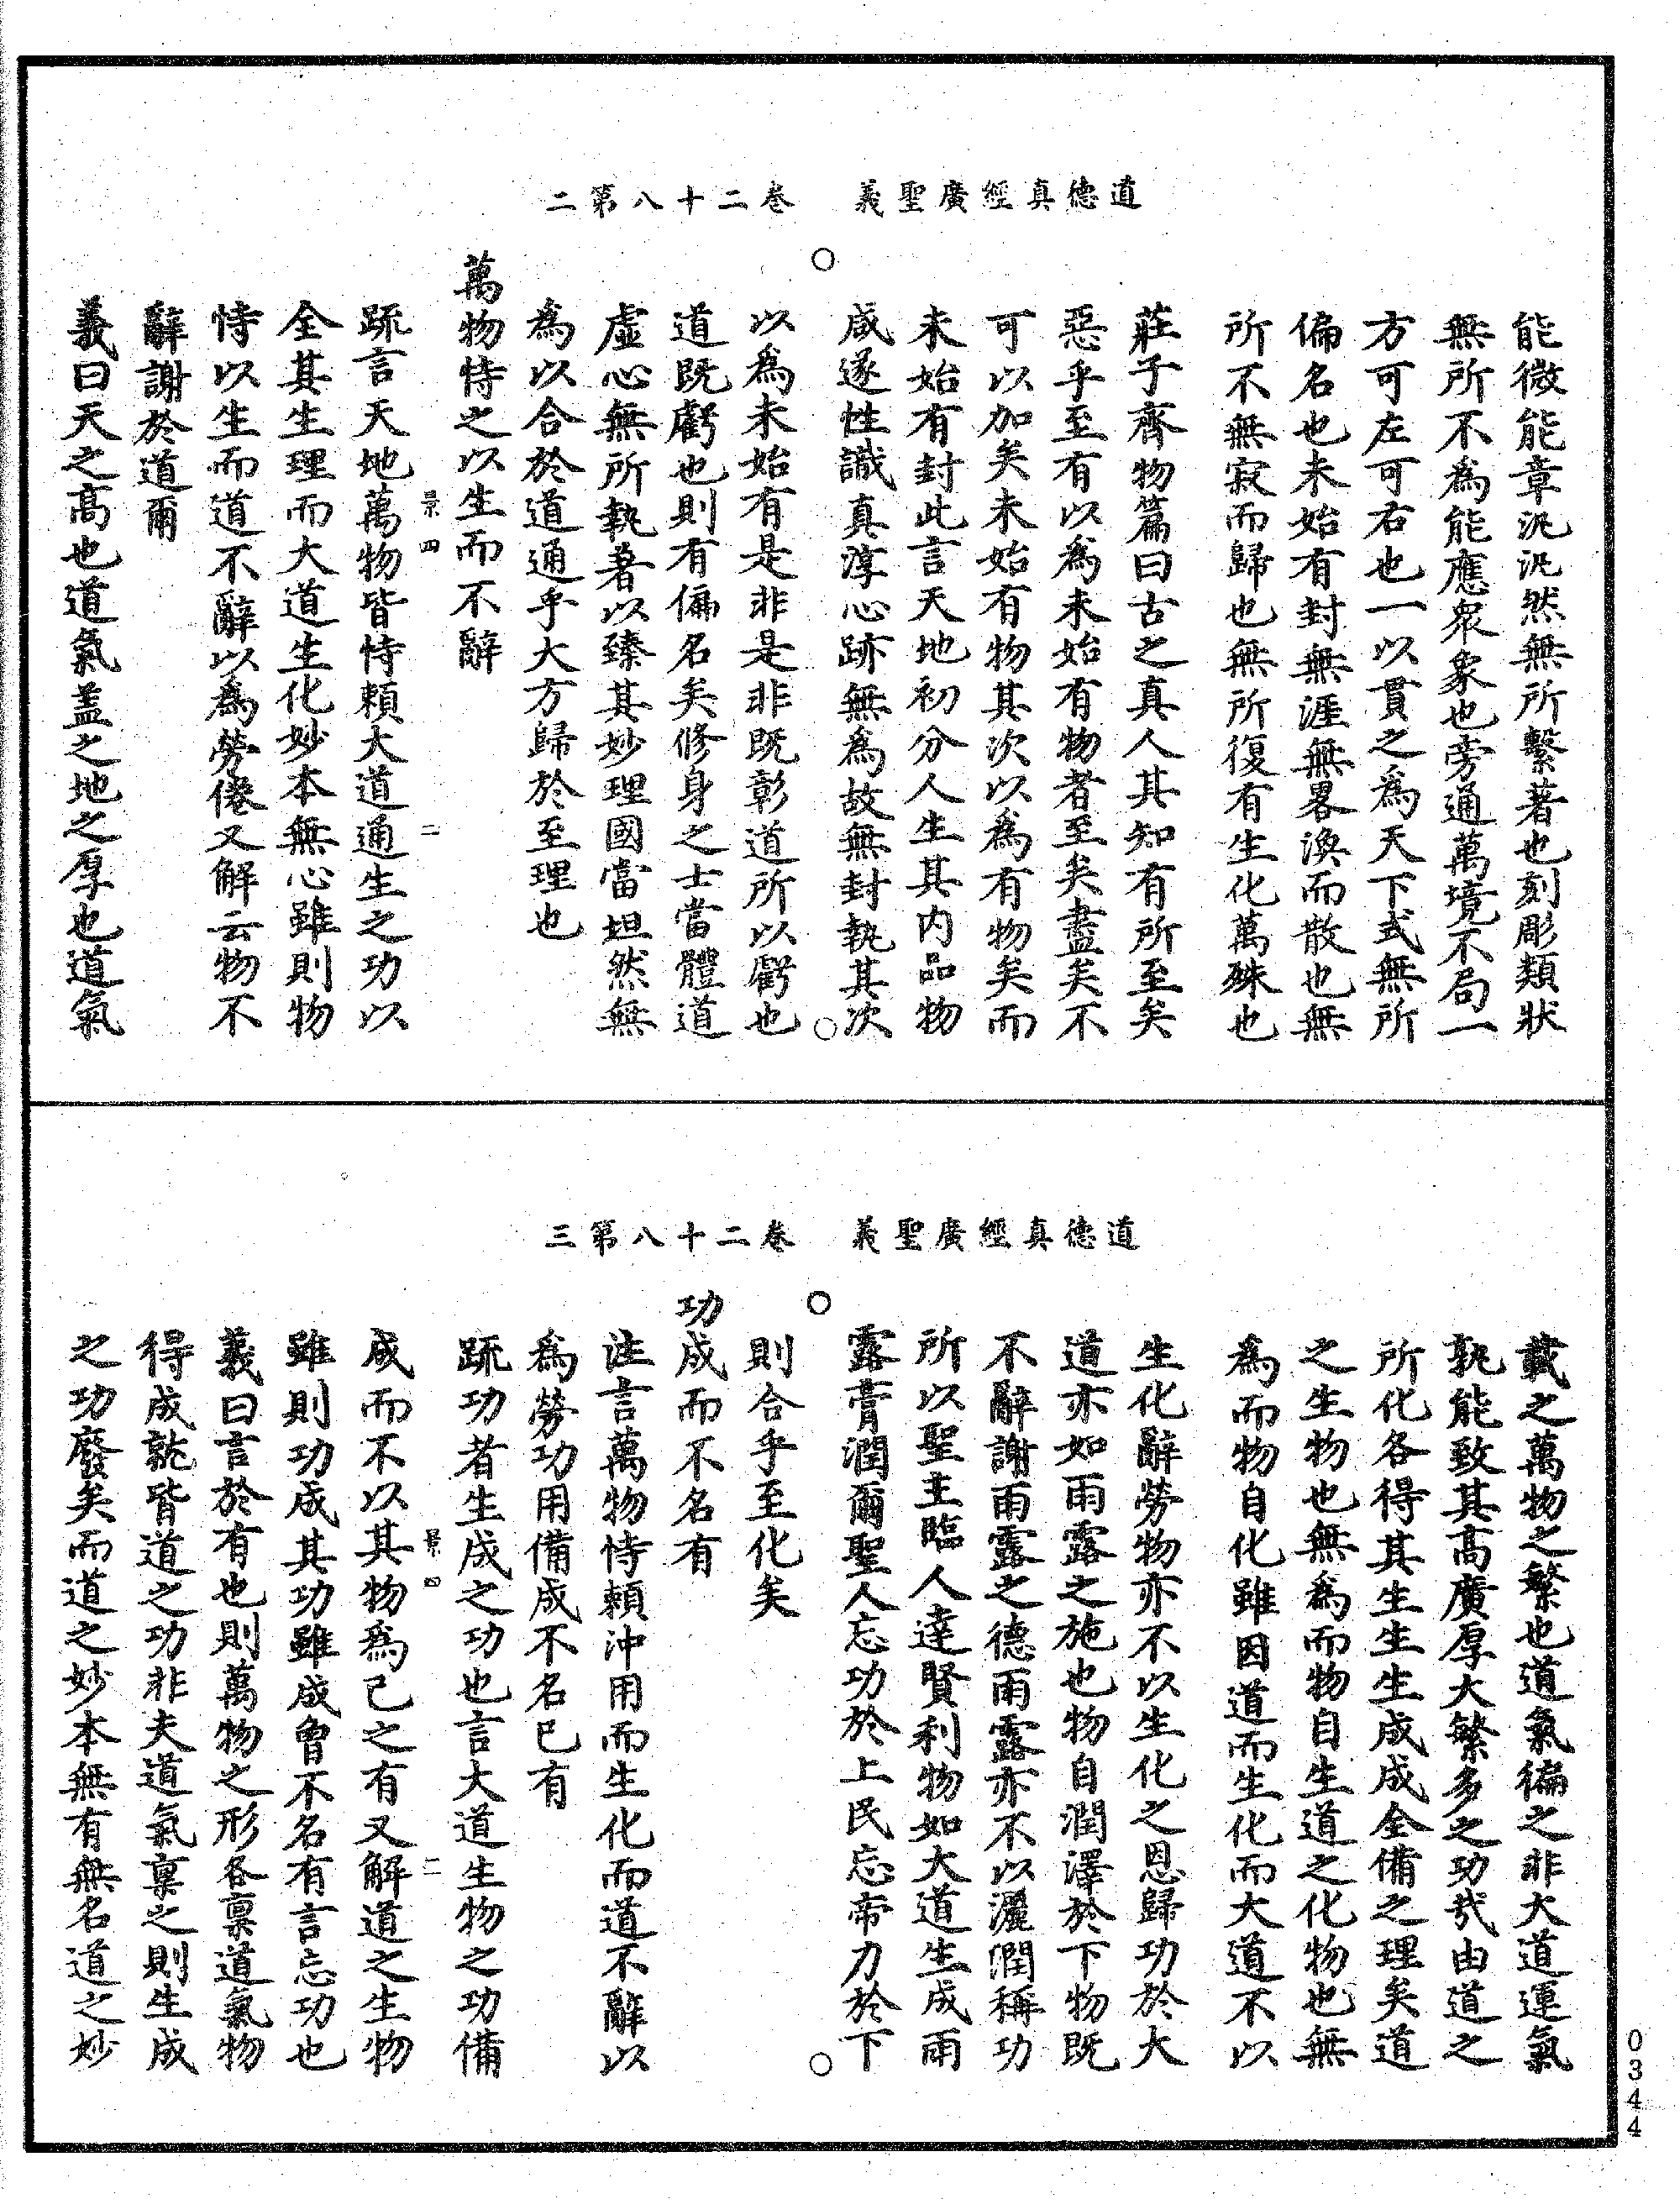 道德真經廣聖義　卷二十八第二
能微能章汎汎然無所繫著也刻彫類狀
無所不為能應衆象也旁通萬境不局一
方可左可右也一以貫之為天下式無所
偏名也未始有封無涯無畧渙而散也無
所不無寂而歸也無所復有生化萬殊也
莊子齊物篇曰古之真人其知有所至矣
惡乎至有以為未始有物者至矣盡矣不
可以加矣未始有物其次以為有物矣而
未始有封此言天地初分人生其内品物
咸遂性識真淳心跡無為故無封執其次
以為未始有是非是非既彰道所以虧也
道既虧也則有偏名矣修身之士當體道
虛心無所執著以臻其妙理國當坦然無
為以合於道通乎大方歸於至理也
萬物恃之以生而不辭
景四　二
疏言天地萬物皆恃賴大道通生之功以
全其生理而大道生化妙本無心雖則物
恃以生而道不辭以為勞倦又解云物不
辭謝於道爾
義曰天之高也道氣盖之地之厚也道氣
道德真經廣聖義　卷二十八第三
載之萬物之繁也道氣徧之非大道運氣
孰能致其高廣厚大繁多之功哉由道之
所化各得其生生生成成全備之理矣道
之生物也無為而物自生道之化物也無
為而物自化雖因道而生化而大道不以
生化辭勞物亦不以生化之恩歸功於大
道亦如雨露之施也物自潤澤於下物既
不辭謝雨露之德雨露亦不以灑潤稱功
所以聖主臨人達賢利物如大道生成雨
露膏潤爾聖人忘功於上民忘帝力於下
則合乎至化矣
功成而不名有
注言萬物恃賴沖用而生化而道不辭以
為勞功用備成不名已有
疏功者生成之功也言大道生物之功備
景四　二
成而不以其物為己之有又解道之生物
雖則功成其功雖成曾不名有言忘功也
義曰言於有也則萬物之形各禀道氣物
得成就皆道之功非夫道氣禀之則生成
之功廢矣而道之妙本無有無名道之妙
0344